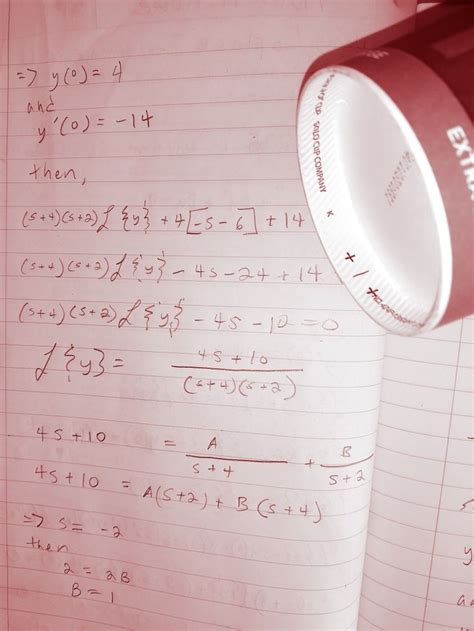 => y(0) = 4
and
y'(0) = -14
then,
(s+4)(s+2)ℒ{y} + 4[-s-6] + 14
(s+4)(s+2)ℒ{y} - 4s - 24 + 14
(s+4)(s+2)ℒ{y} - 4s - 10 = 0
ℒ{y} = 4s + 10 / (s+4)(s+2)
4s + 10 = A / s+4 + B / s+2
4s + 10 = A(s+2) + B(s+4)
=> s = -2
then
2 = 2B
B = 1
SOLO CUP COMPANY
EXTR